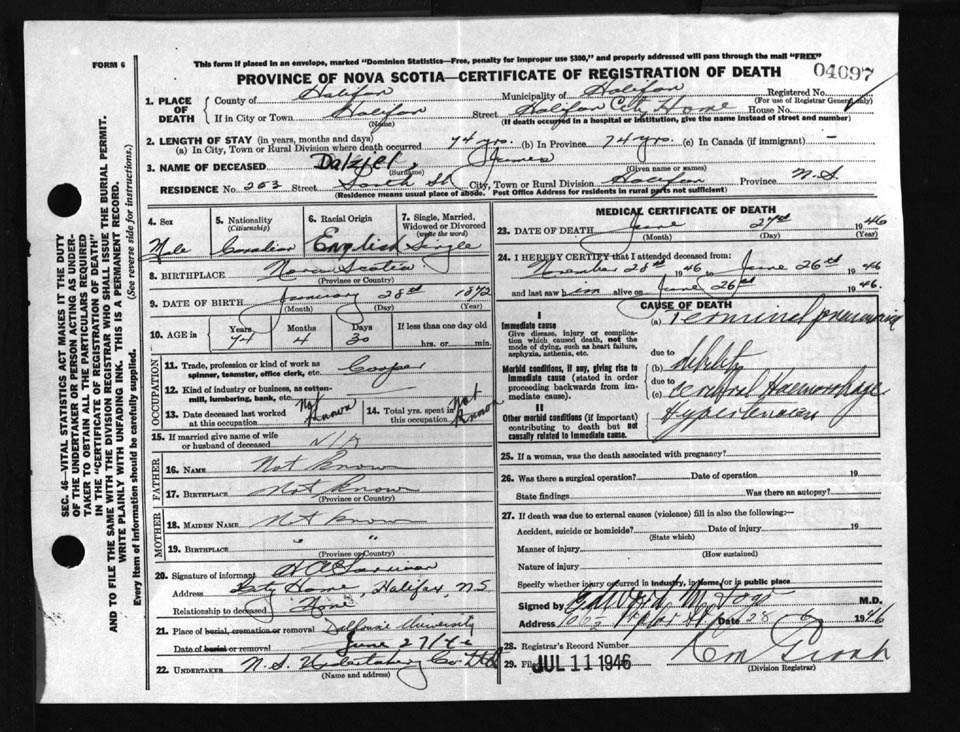 FORM 6
This form if placed in an envelope, marked "Dominion Statistics—Free, penalty for improper use $300," and properly addressed will pass through the mail "FREE"
PROVINCE OF NOVA SCOTIA—CERTIFICATE OF REGISTRATION OF DEATH
04097
1. PLACE OF DEATH
County of Halifax Municipality of Halifax Registered No.
(For use of Registrar General only)
If in City or Town Halifax Street Halifax City Home House No.
(Name) (If death occurred in a hospital or institution, give the name instead of street and number)
2. LENGTH OF STAY (in years, months and days)
(a) In City, Town or Rural Division where death occurred 74 yrs. (b) In Province 74 yrs. (c) In Canada (if immigrant) —
3. NAME OF DECEASED Dalziel, James
(Surname) (Given name or names)
RESIDENCE No. 203 Street South St City, Town or Rural Division Halifax Province N.S.
(Residence means usual place of abode. Post Office Address for residents in rural parts not sufficient)
4. Sex
Male
5. Nationality (Citizenship)
Canadian
6. Racial Origin
English
7. Single, Married, Widowed or Divorced (write the word)
Single
8. BIRTHPLACE Nova Scotia
(Province or Country)
9. DATE OF BIRTH January 28th 1872
(Month) (Day) (Year)
10. AGE in Years Months Days If less than one day old
74 4 30 hrs. or min.
OCCUPATION
11. Trade, profession or kind of work as spinner, teamster, office clerk, etc. Cooper
12. Kind of industry or business, as cotton-mill, lumbering, bank, etc.
13. Date deceased last worked at this occupation Not Known
14. Total yrs. spent in this occupation Not Known
15. If married give name of wife or husband of deceased N/A
FATHER
16. NAME Not Known
17. BIRTHPLACE Not Known
(Province or Country)
MOTHER
18. MAIDEN NAME Not Known
19. BIRTHPLACE " "
(Province or Country)
20. Signature of informant
Address City Home, Halifax, N.S.
Relationship to deceased None
21. Place of burial, cremation or removal Dalhousie University
Date of burial or removal June 27/46
22. UNDERTAKER N.S. Undertaking Co. Ltd
(Name and address)
MEDICAL CERTIFICATE OF DEATH
23. DATE OF DEATH June 27th 1946
(Month) (Day)
24. I HEREBY CERTIFY that I attended deceased from:
28th 1946 to June 26th 1946
and last saw him alive on June 26th 1946.
CAUSE OF DEATH
I
Immediate cause
Give disease, injury or complication which caused death, not the mode of dying, such as heart failure, asphyxia, asthenia, etc.
(a) Terminal pneumonia
due to
Morbid conditions, if any, giving rise to immediate cause (stated in order proceeding backwards from immediate cause).
(b) debility
due to
(c) cerebral Haemorrhage
II
Other morbid conditions (if important) contributing to death but not causally related to immediate cause.
Hypertension
25. If a woman, was the death associated with pregnancy?
26. Was there a surgical operation? Date of operation 19
State findings Was there an autopsy?
27. If death was due to external causes (violence) fill in also the following:—
Accident, suicide or homicide? Date of injury 19
(State which)
Manner of injury
(How sustained)
Nature of injury
Specify whether injury occurred in industry, in home/or in public place
Signed by M.D.
Address Date 28 6 1946
28. Registrar's Record Number
29. Filed JUL 11 1946
(Division Registrar)
SEC. 46—VITAL STATISTICS ACT MAKES IT THE DUTY
OF THE UNDERTAKER OR PERSON ACTING AS UNDER-
TAKER TO OBTAIN ALL THE PARTICULARS REQUIRED
IN THE "CERTIFICATE OF REGISTRATION OF DEATH"
AND TO FILE THE SAME WITH THE DIVISION REGISTRAR WHO SHALL ISSUE THE BURIAL PERMIT.
WRITE PLAINLY WITH UNFADING INK. THIS IS A PERMANENT RECORD.
Every item of information should be carefully supplied. (See reverse side for instructions.)